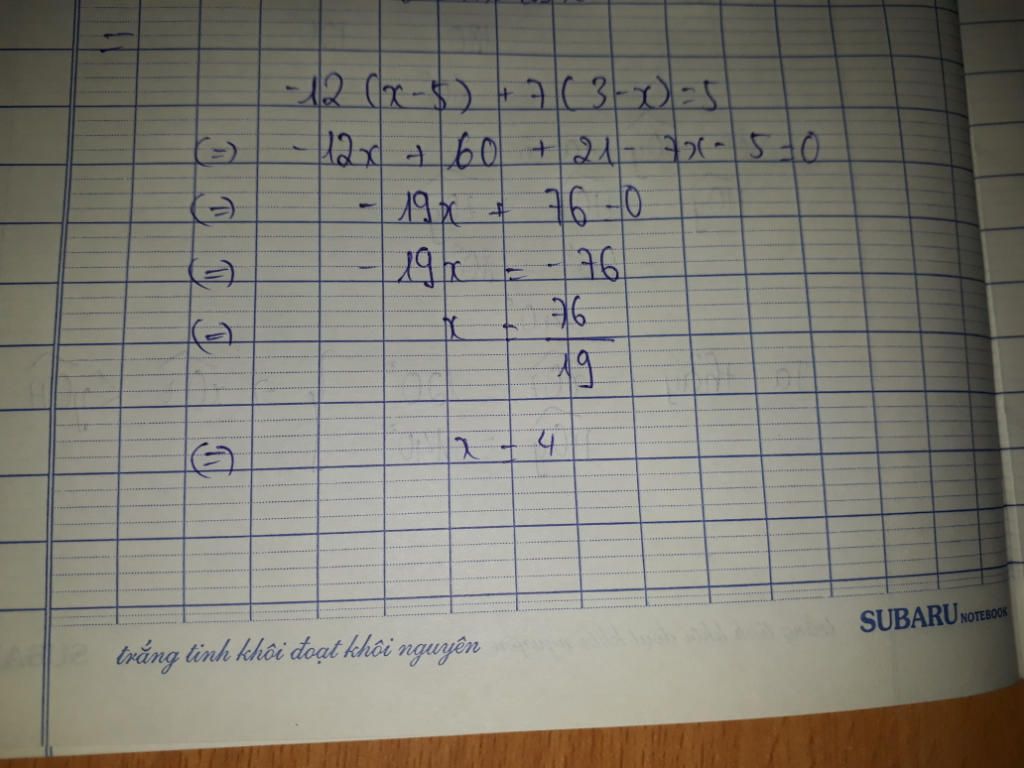 -12 (x-5) + 7 (3-x) = 5
(=) -12x + 60 + 21 - 7x - 5 = 0
(=) - 19x + 76 = 0
(=) - 19x = - 76
(=) x = 76
19
(=) x = 4
SUBARU NOTEBOOK
trắng tinh khôi đoạt khôi nguyên